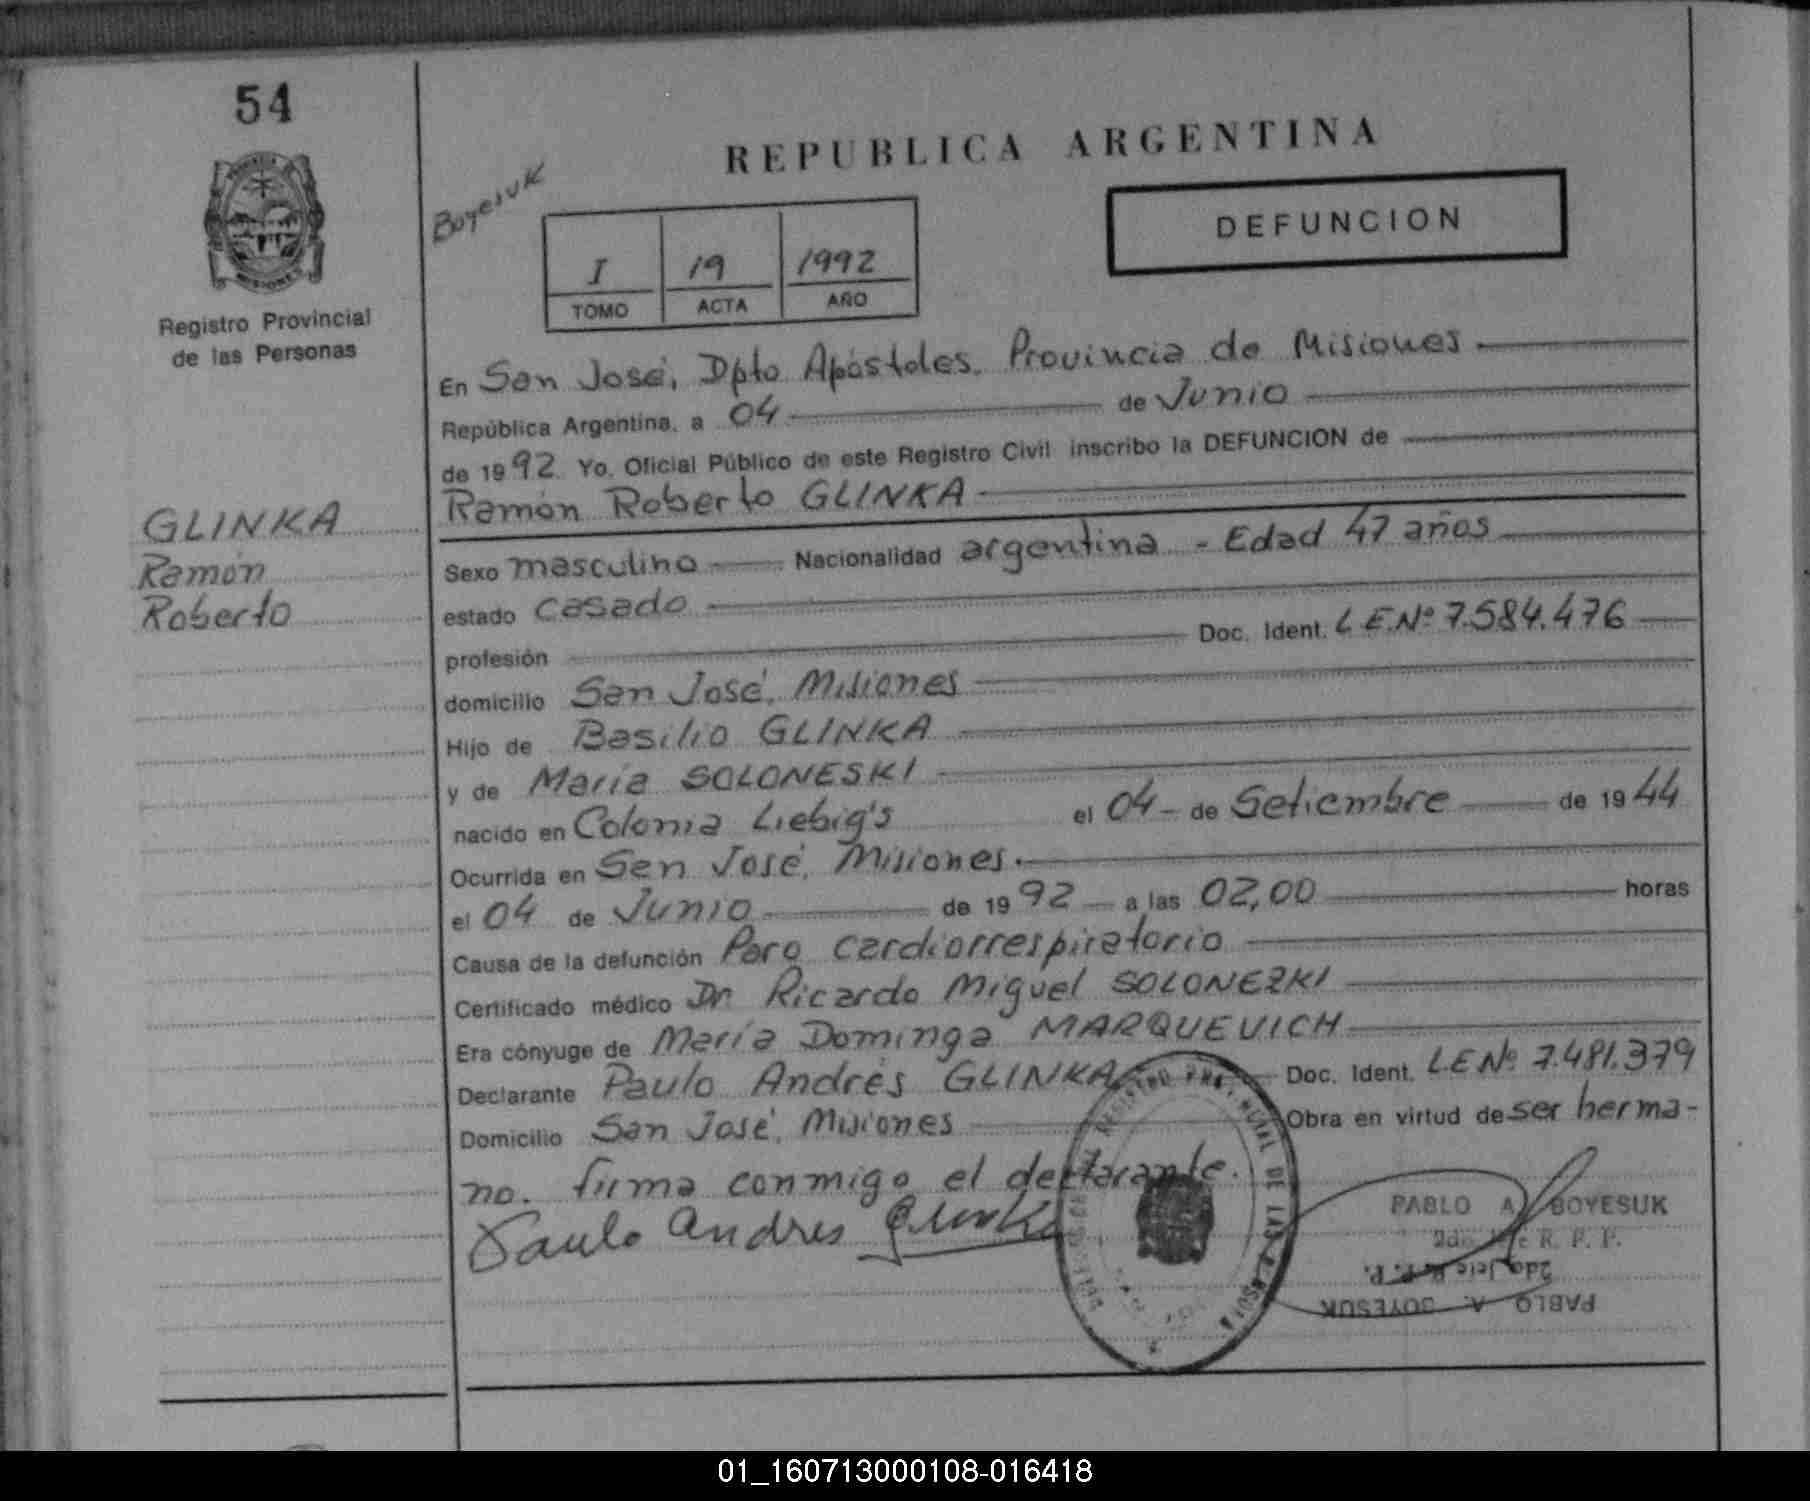 54
MISIONES
Registro Provincial
de las Personas
GLINKA
Ramón
Roberto
REPUBLICA ARGENTINA
Boyesuk
I 19 1992
TOMO ACTA AÑO
DEFUNCION
En San José, Dpto Apóstoles. Provincia de Misiones.
República Argentina, a 04 de Junio
de 1992. Yo, Oficial Público de este Registro Civil inscribo la DEFUNCION de
Ramón Roberto GLINKA
Sexo masculino Nacionalidad argentina - Edad 47 años
estado casado
profesión Doc. Ident. L E.Nº 7.584.476
domicilio San José, Misiones
Hijo de Basilio GLINKA
y de María SOLONESKI
nacido en Colonia Liebig's el 04 - de Setiembre de 1944
Ocurrida en San José, Misiones.
el 04 de Junio de 1992 a las 02,00 horas
Causa de la defunción Paro cardiorrespiratorio
Certificado médico Dr. Ricardo Miguel SOLONEZKI
Era cónyuge de María Dominga MARQUEVICH
Declarante Paulo Andrés GLINKA Doc. Ident. L E Nº 7.481.379
Domicilio San José, Misiones Obra en virtud de ser herma-
no. firma conmigo el declarante.
Paulo Andres Glinka
REGISTRO PROVINCIAL DE LAS PERSONAS
PABLO A. BOYESUK
2do Jefe R. P. P.
2do Jefe R. P. P.
PABLO A. BOYESUK
01_160713000108-016418